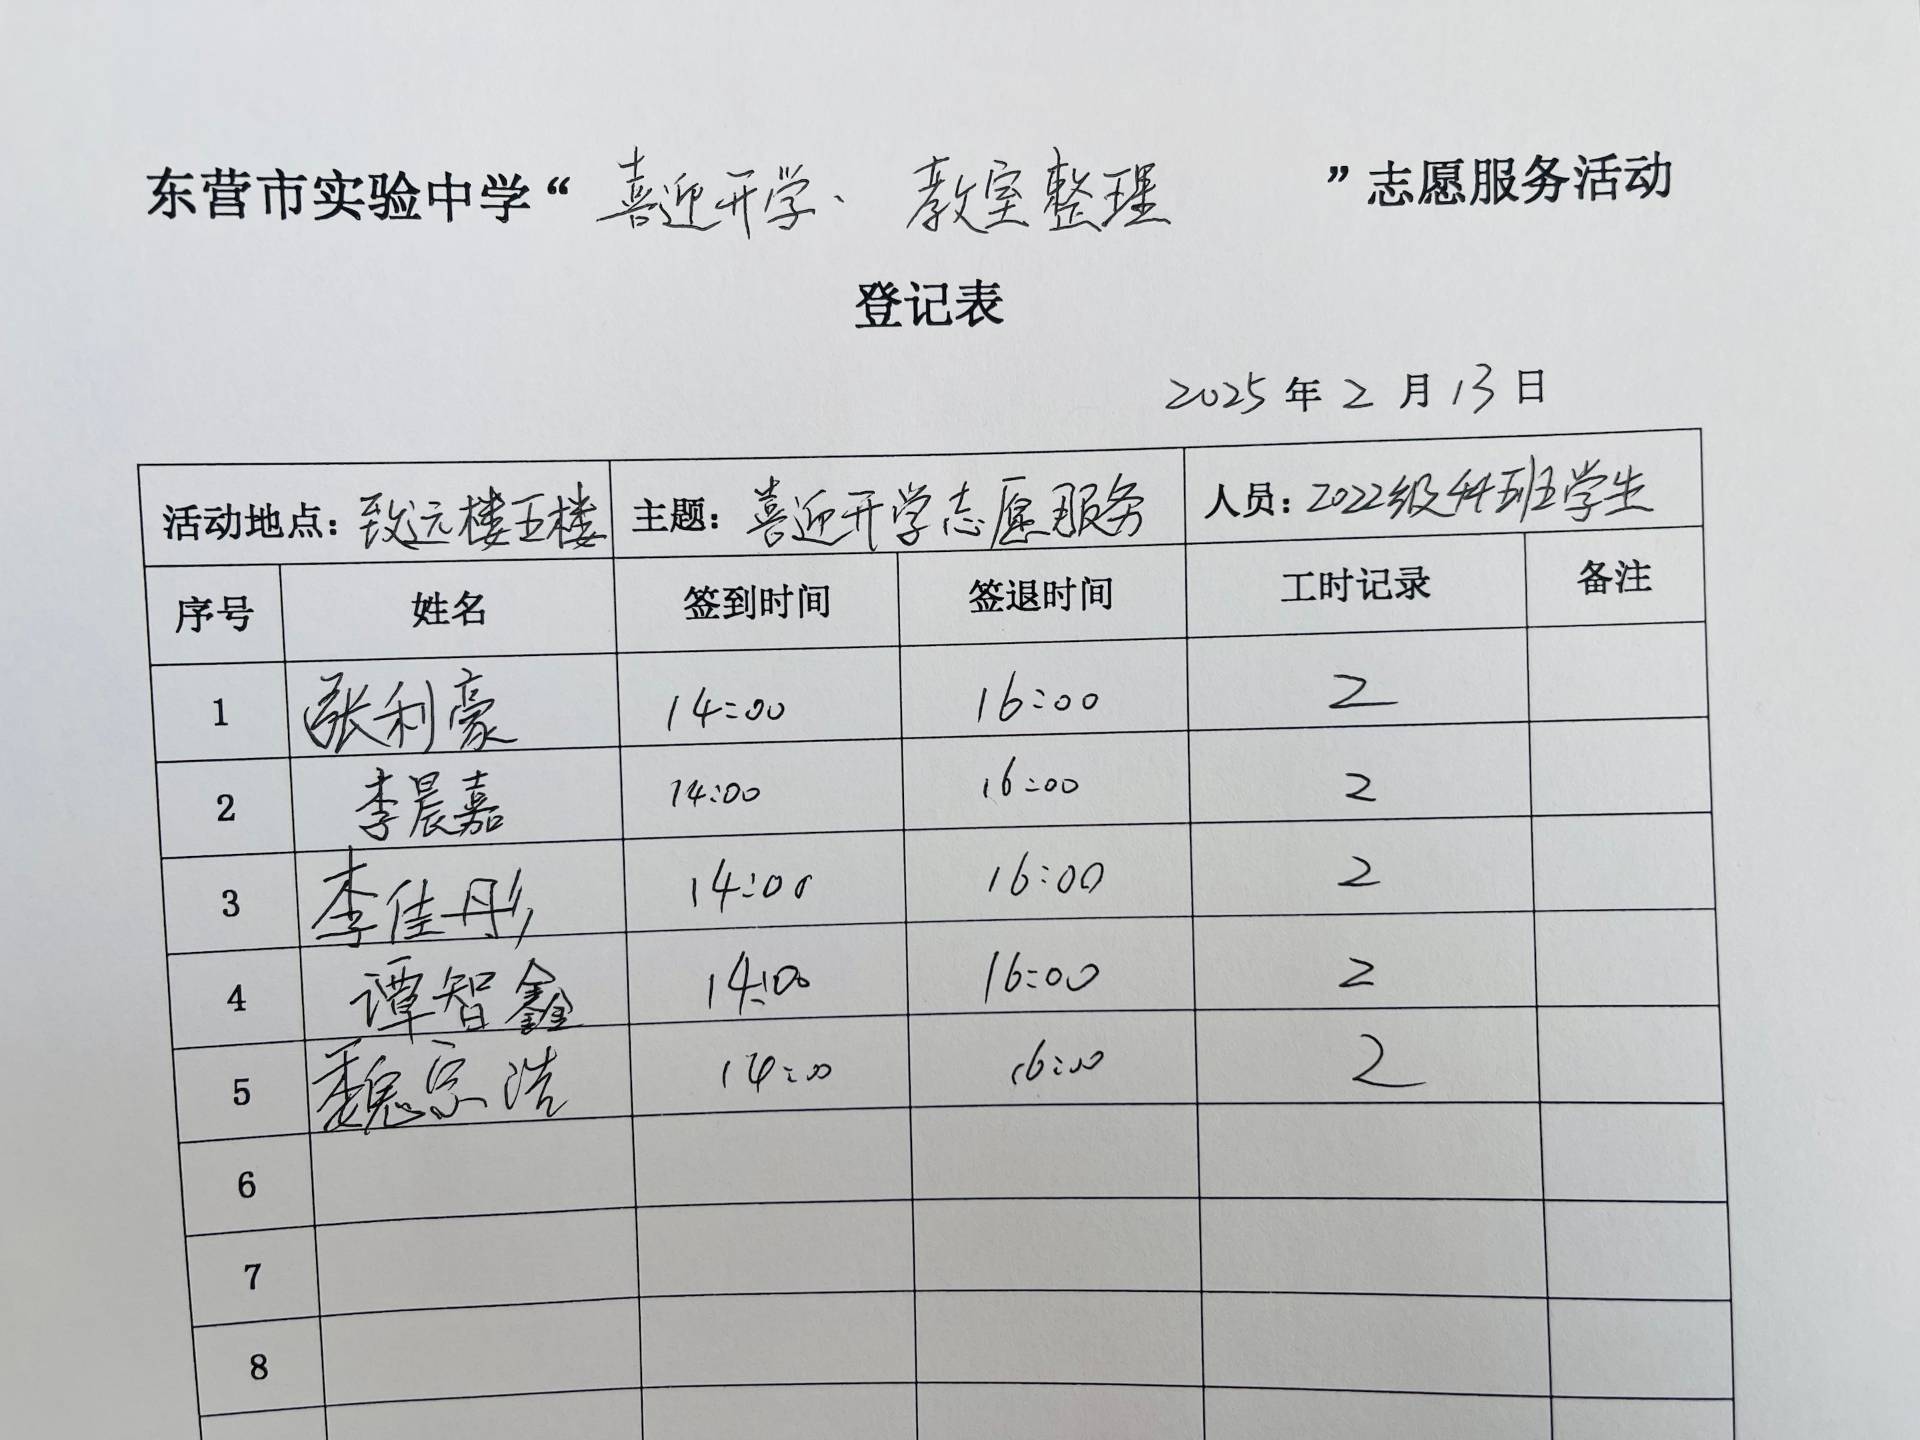 东营市实验中学“喜迎开学、教室整理”志愿服务活动
登记表
2025年2月13日
活动地点：致远楼五楼 主题：喜迎开学志愿服务 人员：2022级44班学生
序号 姓名 签到时间 签退时间 工时记录 备注
1 张利豪 14:00 16:00 2
2 李晨嘉 14:00 16:00 2
3 李佳彤 14:00 16:00 2
4 谭智鑫 14:00 16:00 2
5 魏宗浩 14:00 16:00 2
6
7
8